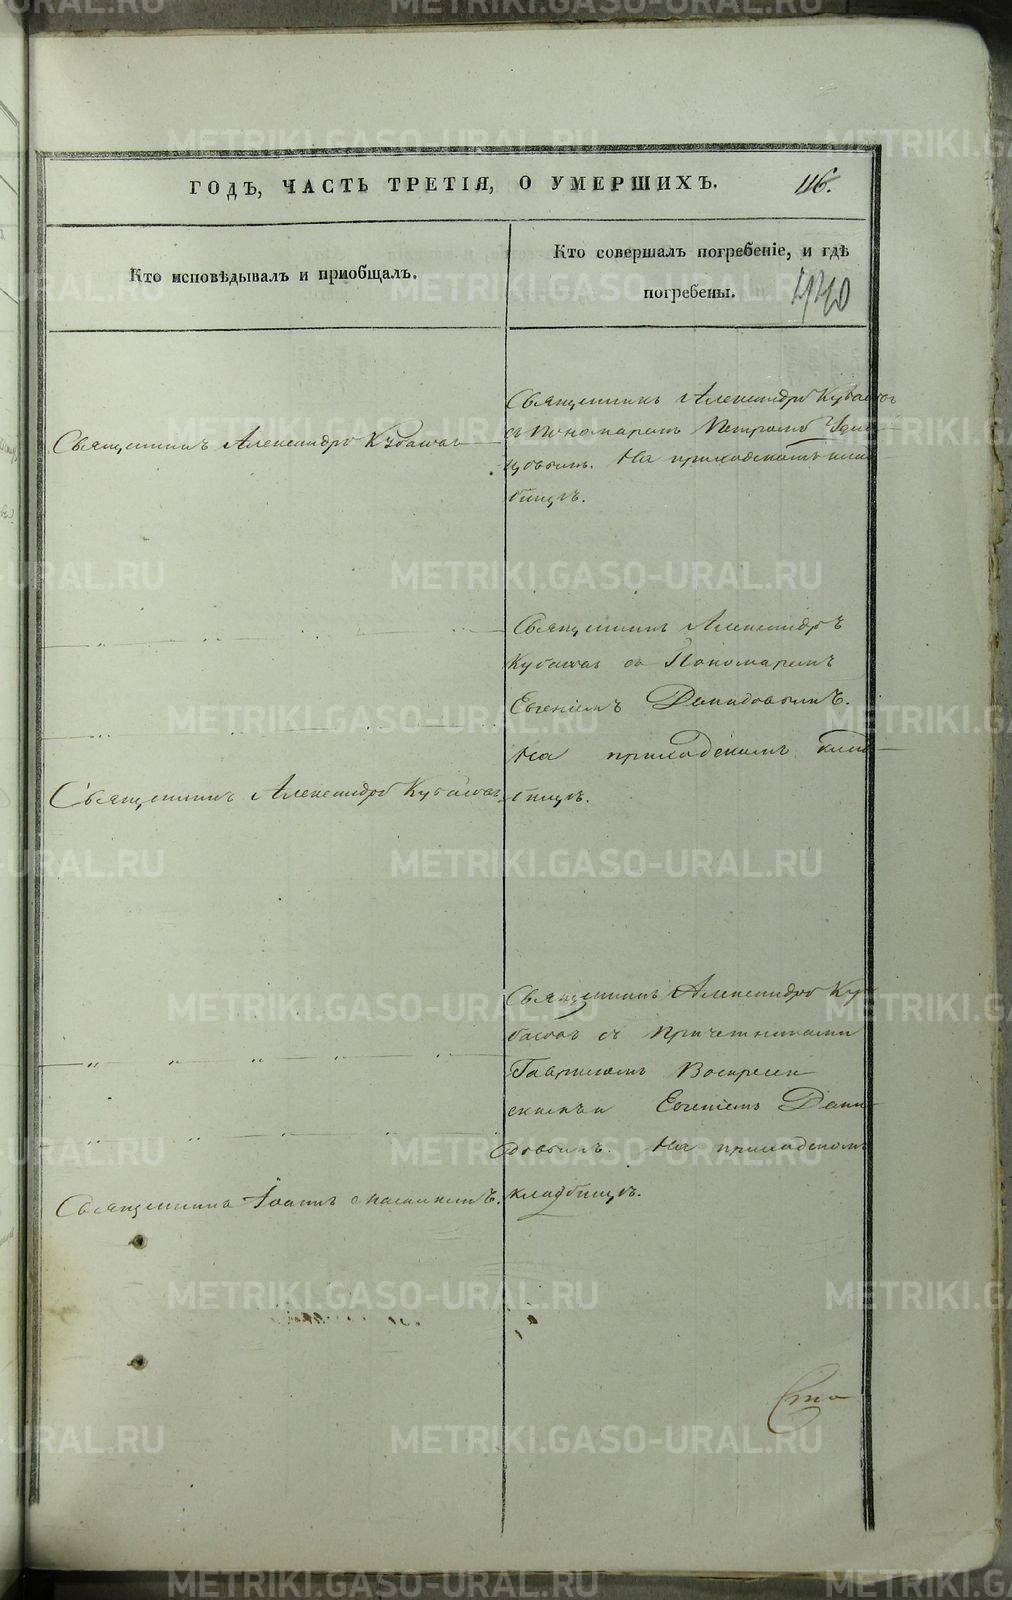 ГОДЪ, ЧАСТЬ ТРЕТІЯ, О УМЕРШИХЪ. 116.
Кто исповѣдывалъ и приобщалъ.
Кто совершалъ погребеніе, и гдѣ
погребены. 440
Священникъ Александръ Кубасовъ
Священникъ Александръ Кубасовъ
съ Пономаремъ Петромъ
На приходскомъ клад
бищѣ.
Священникъ Александръ
Кубасовъ съ Пономаремъ
Евгеніемъ Демидовымъ.
На приходскомъ клад
бищѣ.
Священникъ Александръ Кубасовъ
Священникъ Александръ Ку
басовъ съ Причетниками
Гавриломъ Воскресен
скимъ и Евгеніемъ Деми
довымъ. На приходскомъ
кладбищѣ.
Священникъ Іоаннъ
Сто
METRIKI.GASO-URAL.RU